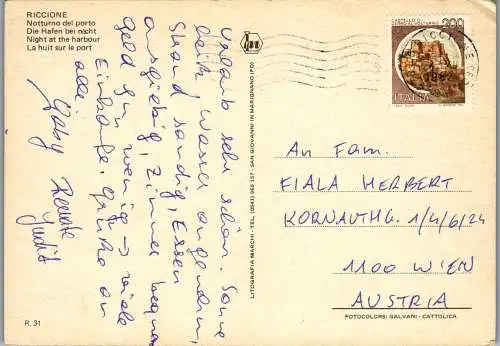 RICCIONE
Notturno del porto
Die Hafen bei nicht
Night at the harbour
La huit sur le port
Urlaub sehr schön. Sonne
heiß, Wasser angenehm,
Strand sandig, Essen
ausgiebig, Zimmer bequem
Geld zu wenig → viele
Einkäufe. Grüße an
alle
Gaby Renate
Judit
LITOGRAFIA MARCHI - TEL. (0541) 955 157 - SAN GIOVANNI IN MARIGNANO (FO)
200
ITALIA
An Fam.
FIALA HERBERT
KORNAUTHG. 1/4/6/24
1100 WIEN
AUSTRIA
R. 31
FOTOCOLORS: GALVANI - CATTOLICA